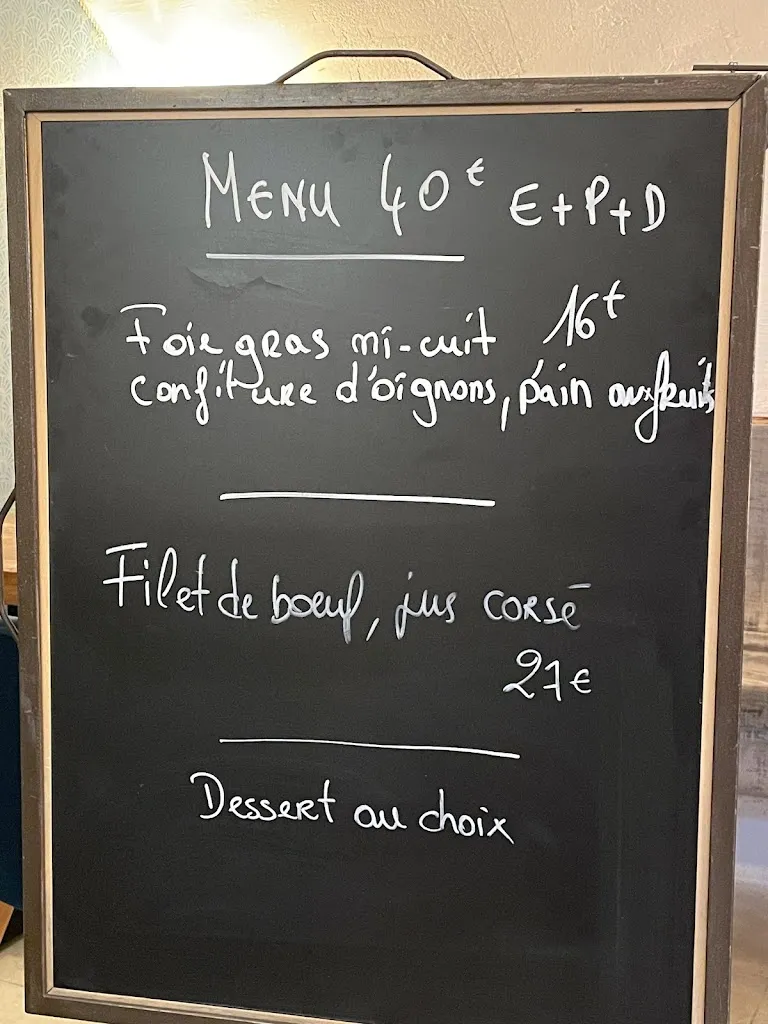 MENU 40€ E+P+D
Foie gras mi-cuit 16€
confiture d'oignons, pain aux fruits
Filet de boeuf, jus corsé
27€
Dessert au choix